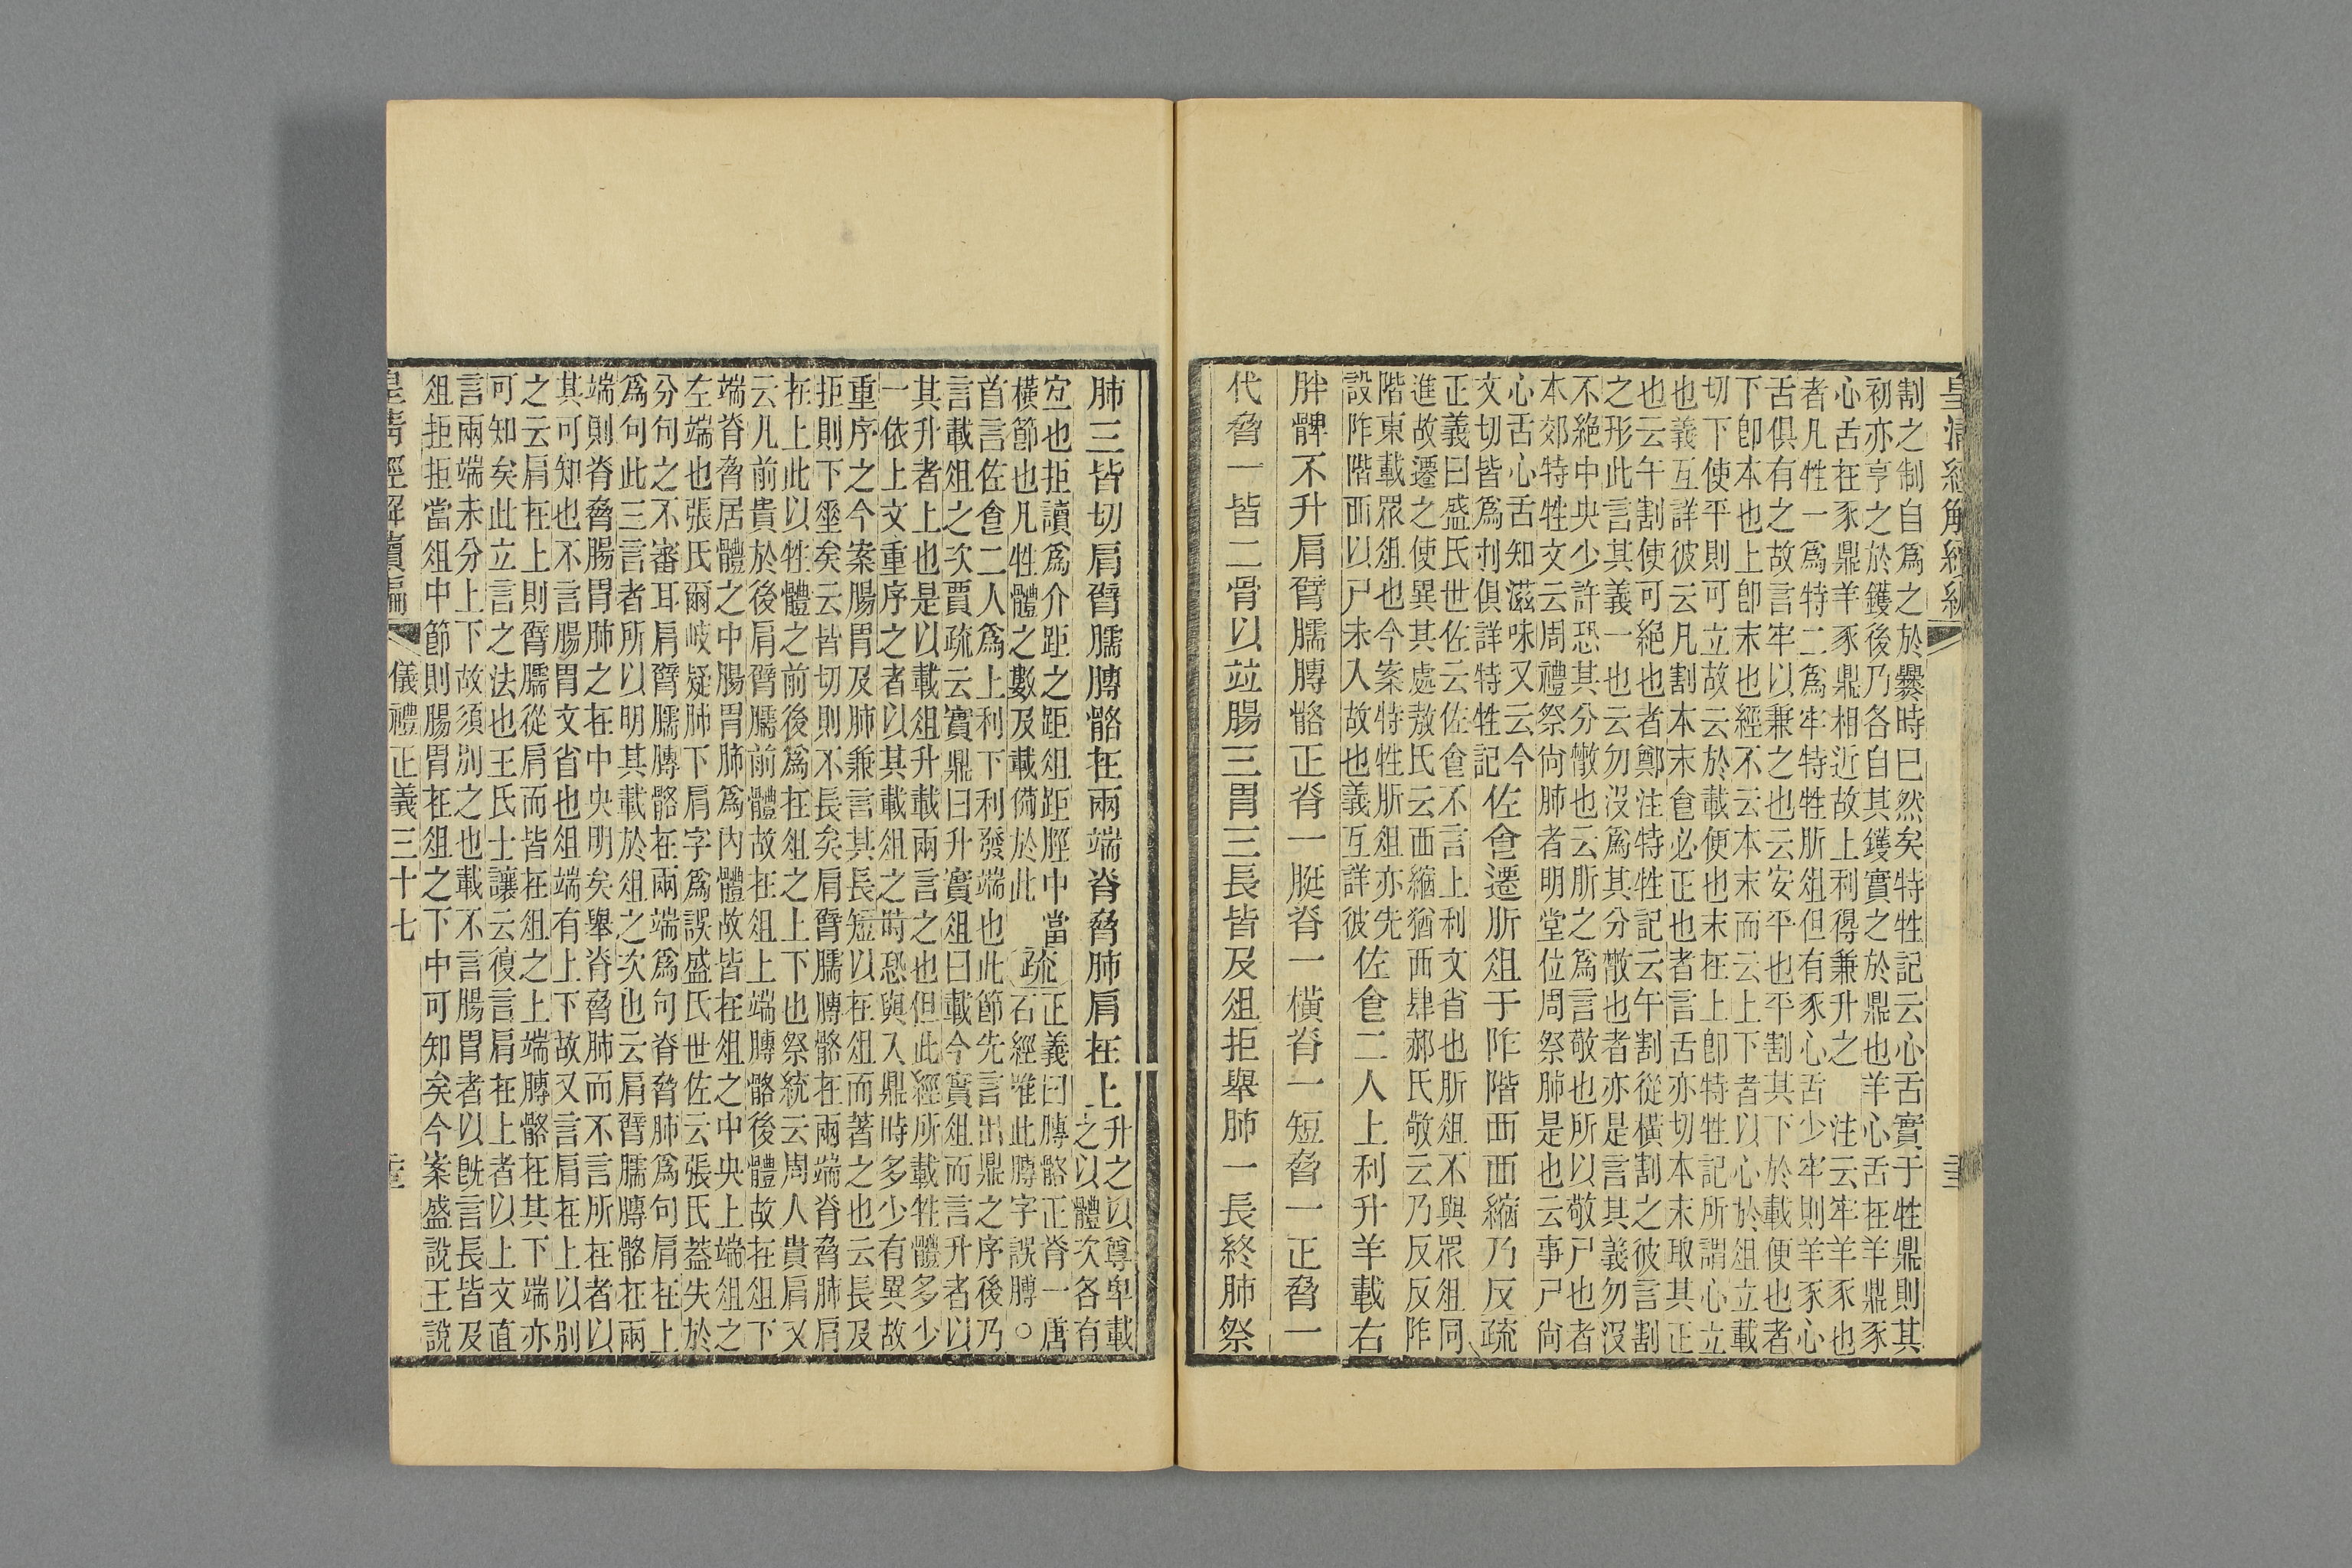 割之制自爲之於爨時已然矣特牲記云心舌實于牲鼎則其
初亦亨之於鑊後乃各自其鑊實之於鼎也羊心舌在羊鼎豕
心舌在豕鼎羊豕鼎相近故上利得兼升之　注云牢羊豕也
者凡牲一爲特二爲牢特牲肵俎但有豕心舌少牢則羊豕心
舌俱有之故言牢以兼之也云安平也平割其下於載便也者
下卽本也上卽末也經不云本末而云上下者以心於俎立載
切下使平則可立故云於載便也末在上卽特牲記所謂心立
也義互詳彼云凡割本末食必正也者言舌亦切本末取其正
也云午割使可絕也者鄭注特牲記云午割從橫割之彼言割
之形此言其義一也云勿沒爲其分㪚也者亦是言其義勿沒
不絕中央少許恐其分㪚也云肵之爲言敬也所以敬尸也者
本郊特牲文云周禮祭尙肺者明堂位周祭肺是也云事尸尙
心舌心舌知滋味又云今
文切皆爲刌俱詳特牲記
佐食遷肵俎于阼階西西縮乃反疏
正義曰盛氏世佐云佐食不言上利文省也肵俎不與眾俎同
進故遷之使異其處敖氏云西縮猶西肆郝氏敬云乃反反阼
階東載眾俎也今案特牲肵俎亦先
設阼階西以尸未入故也義互詳彼
佐食二人上利升羊載右
胖髀不升肩臂臑膊骼正脊一脡脊一橫脊一短脅一正脅一
代脅一皆二骨以竝腸三胃三長皆及俎拒舉肺一長終肺祭
肺三皆切肩臂臑膊骼在兩端脊脅肺肩在上
升之以尊卑載
之以體次各有
宐也拒讀爲介距之距俎距脛中當
橫節也凡牲體之數及載備於此
疏
正義曰膊骼正脊一唐
石經唯此膊字誤膞○
首言佐食二人爲上利下利發端也此節先言出鼎之序後乃
言載俎之次賈疏云實鼎曰升實俎曰載今實俎而言升者以
其升者上也是以載俎升載兩言之也但此經所載牲體多少
一依上文重序之者以其載俎之時恐與入鼎時多少有異故
重序之今案腸胃及肺兼言其長短以在俎而著之也云長及
拒則下垂矣云皆切則不長矣肩臂臑膊骼在兩端脊脅肺肩
在上此以牲體之前後爲在俎之上下也祭統云周人貴肩又
云凡前貴於後肩臂臑前體故在俎上端膊骼後體故在俎下
端脊脅居體之中腸胃肺爲內體故皆在俎之中央上端俎之
左端也張氏爾岐疑肺下肩字爲誤盛氏世佐云張氏葢失於
分句之不審耳肩臂臑膊骼在兩端爲句脊脅肺爲句肩在上
爲句此三言者所以明其載於俎之次也云肩臂臑膊骼在兩
端則脊脅腸胃肺之在中央明矣舉脊脅肺而不言所在者以
其可知也不言腸胃文省也俎端有上下故又言肩在上以別
之云肩在上則臂臑從肩而皆在俎之上端膊骼在其下端亦
可知矣此立言之法也王氏士讓云復言肩在上者以上文直
言兩端未分上下故須別之也載不言腸胃者以旣言長皆及
俎拒拒當俎中節則腸胃在俎之下中可知矣今案盛說王說
皇清經解續編　儀禮正義三十七